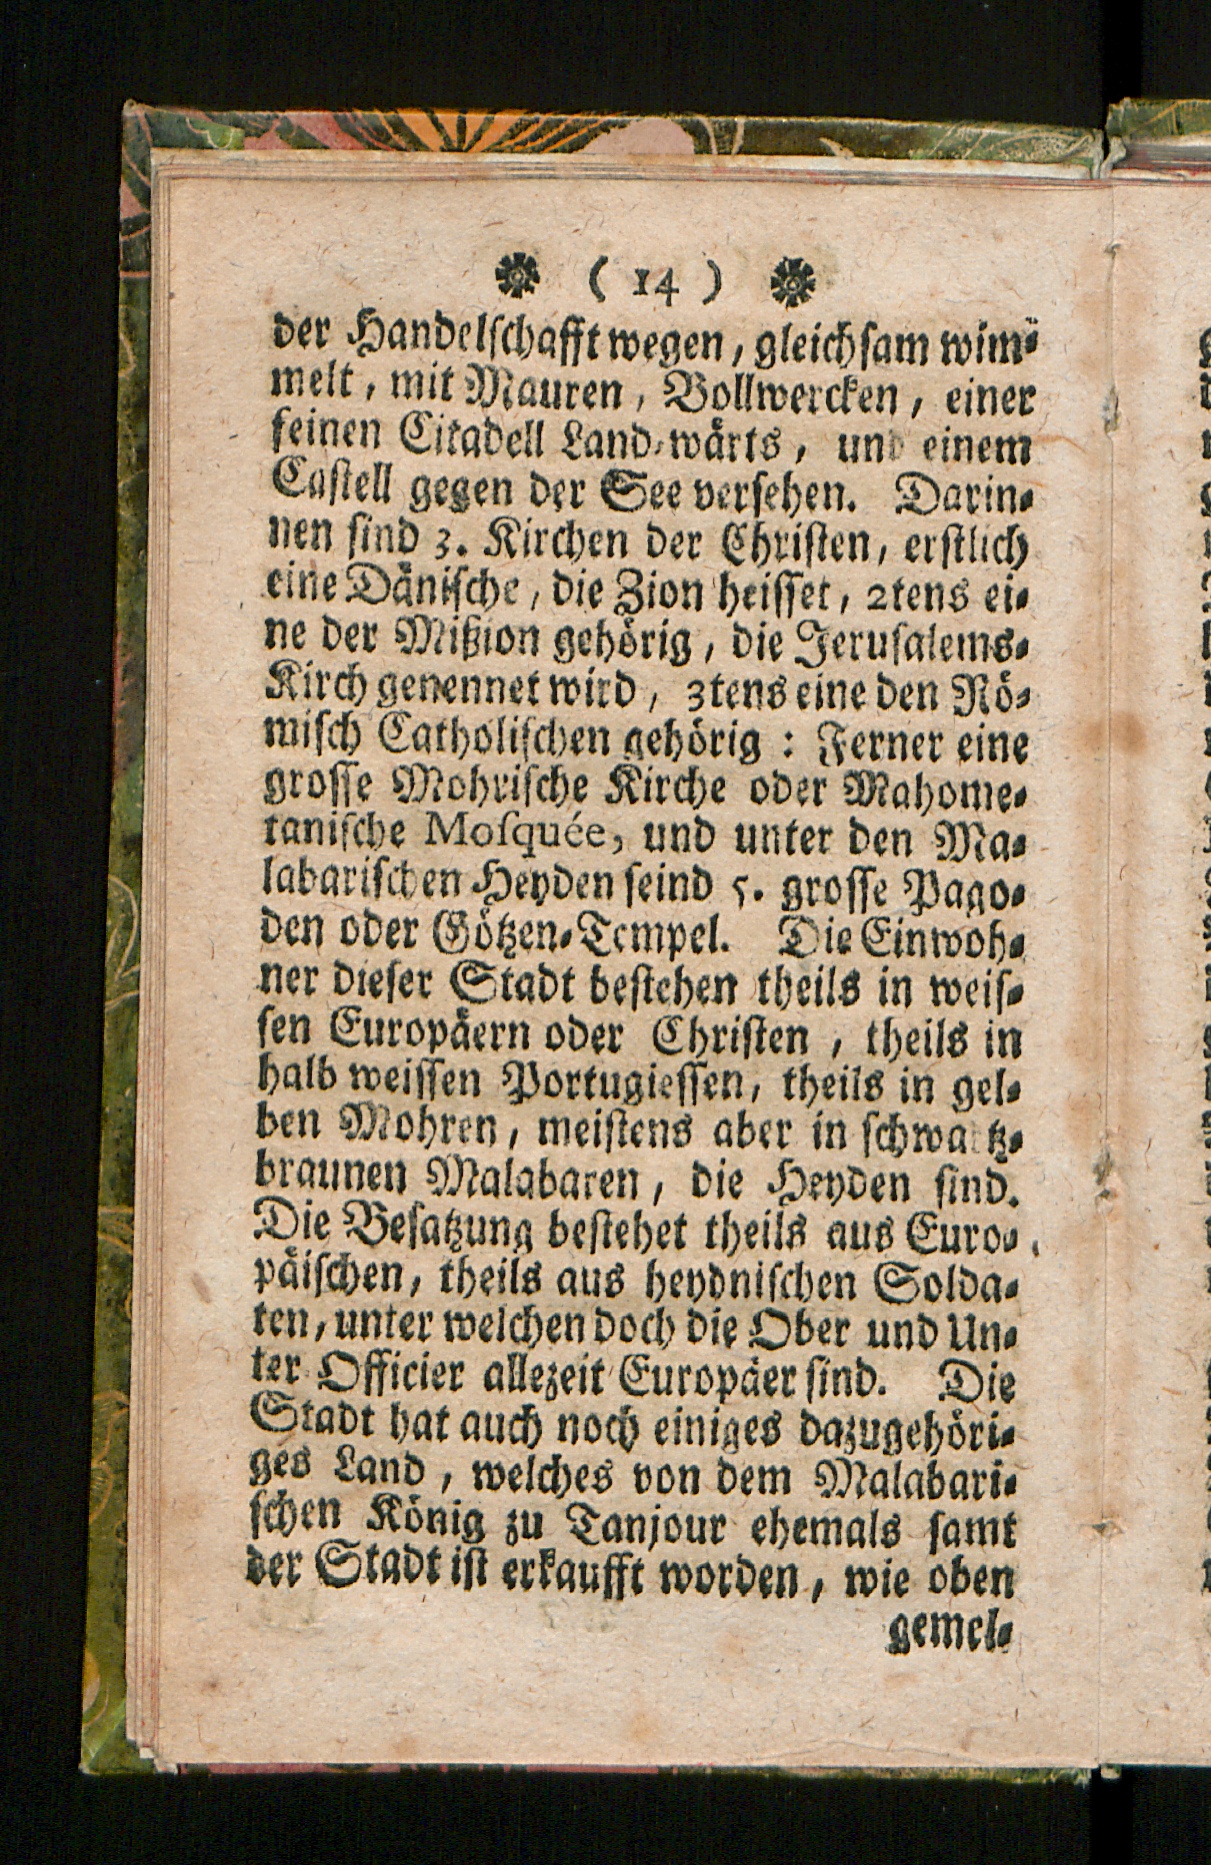 ( 14 )
der Handelſchafft wegen, gleichſam wim⸗
melt, mit Mauren, Bollwercken, einer
feinen Citadell Land⸗wärts, und einem
Caſtell gegen der See verſehen. Darin⸗
nen ſind 3. Kirchen der Chriſten, erſtlich
eine Däniſche, die Zion heiſſet, 2tens ei⸗
ne der Mißion gehörig, die Jeruſalems⸗
Kirch genennet wird, 3tens eine den Rö⸗
miſch Catholiſchen gehörig : Ferner eine
groſſe Mohriſche Kirche oder Mahome⸗
taniſche Moſquée, und unter den Ma⸗
labariſchen Heyden ſeind 5. groſſe Pago⸗
den oder Götzen⸗Tempel. Die Einwoh⸗
ner dieſer Stadt beſtehen theils in weiſ⸗
ſen Europäern oder Chriſten, theils in
halb weiſſen Portugieſſen, theils in gel⸗
ben Mohren, meiſtens aber in ſchwartz⸗
braunen Malabaren, die Heyden ſind.
Die Beſatzung beſtehet theils aus Euro⸗
päiſchen, theils aus heydniſchen Solda⸗
ten, unter welchen doch die Ober und Un⸗
ter Officier allezeit Europäer ſind. Die
Stadt hat auch noch einiges dazugehöri⸗
ges Land, welches von dem Malabari⸗
ſchen König zu Tanjour ehemals ſamt
der Stadt iſt erkaufft worden, wie oben
gemel⸗